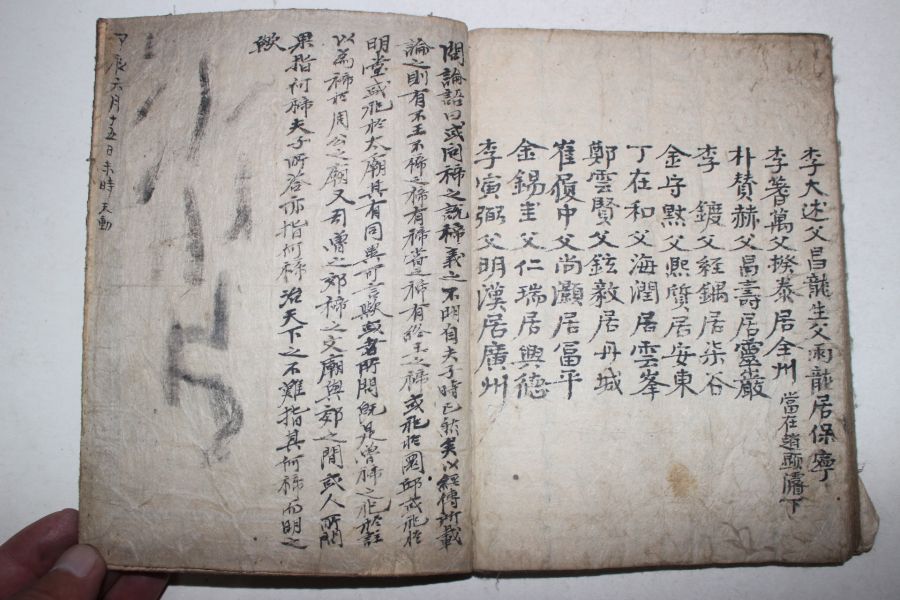 李大述父昌龍生父雨龍居保寧
李耆萬父揆泰居全州 當在趙顯濬下
朴賛赫父昌壽居靈巖
李鍍父經鍝居柒谷
金守黙父熙質居安東
丁在和父海潤居雲峯
鄭雲賢父鉉毅居丹城
崔履中父尚灝居富平
金錫圭父仁瑞居興德
李寅弼父明漢居廣州
問論語曰或問禘之說禘義之不明自夫子時已然矣以經傳所載
論之則有不王不禘之禘有禘嘗之禘有終王之禘或施於圜邱或施於
明堂或施於太廟其有同異可言歟或者所問旣是魯禘之施於註
以爲禘於周公之廟又引魯之郊禘之文廟與郊之間或人所問
果指何禘夫子所答亦指何禘治天下之不難指其何禘而明之
歟
甲辰六月十五日未時天動